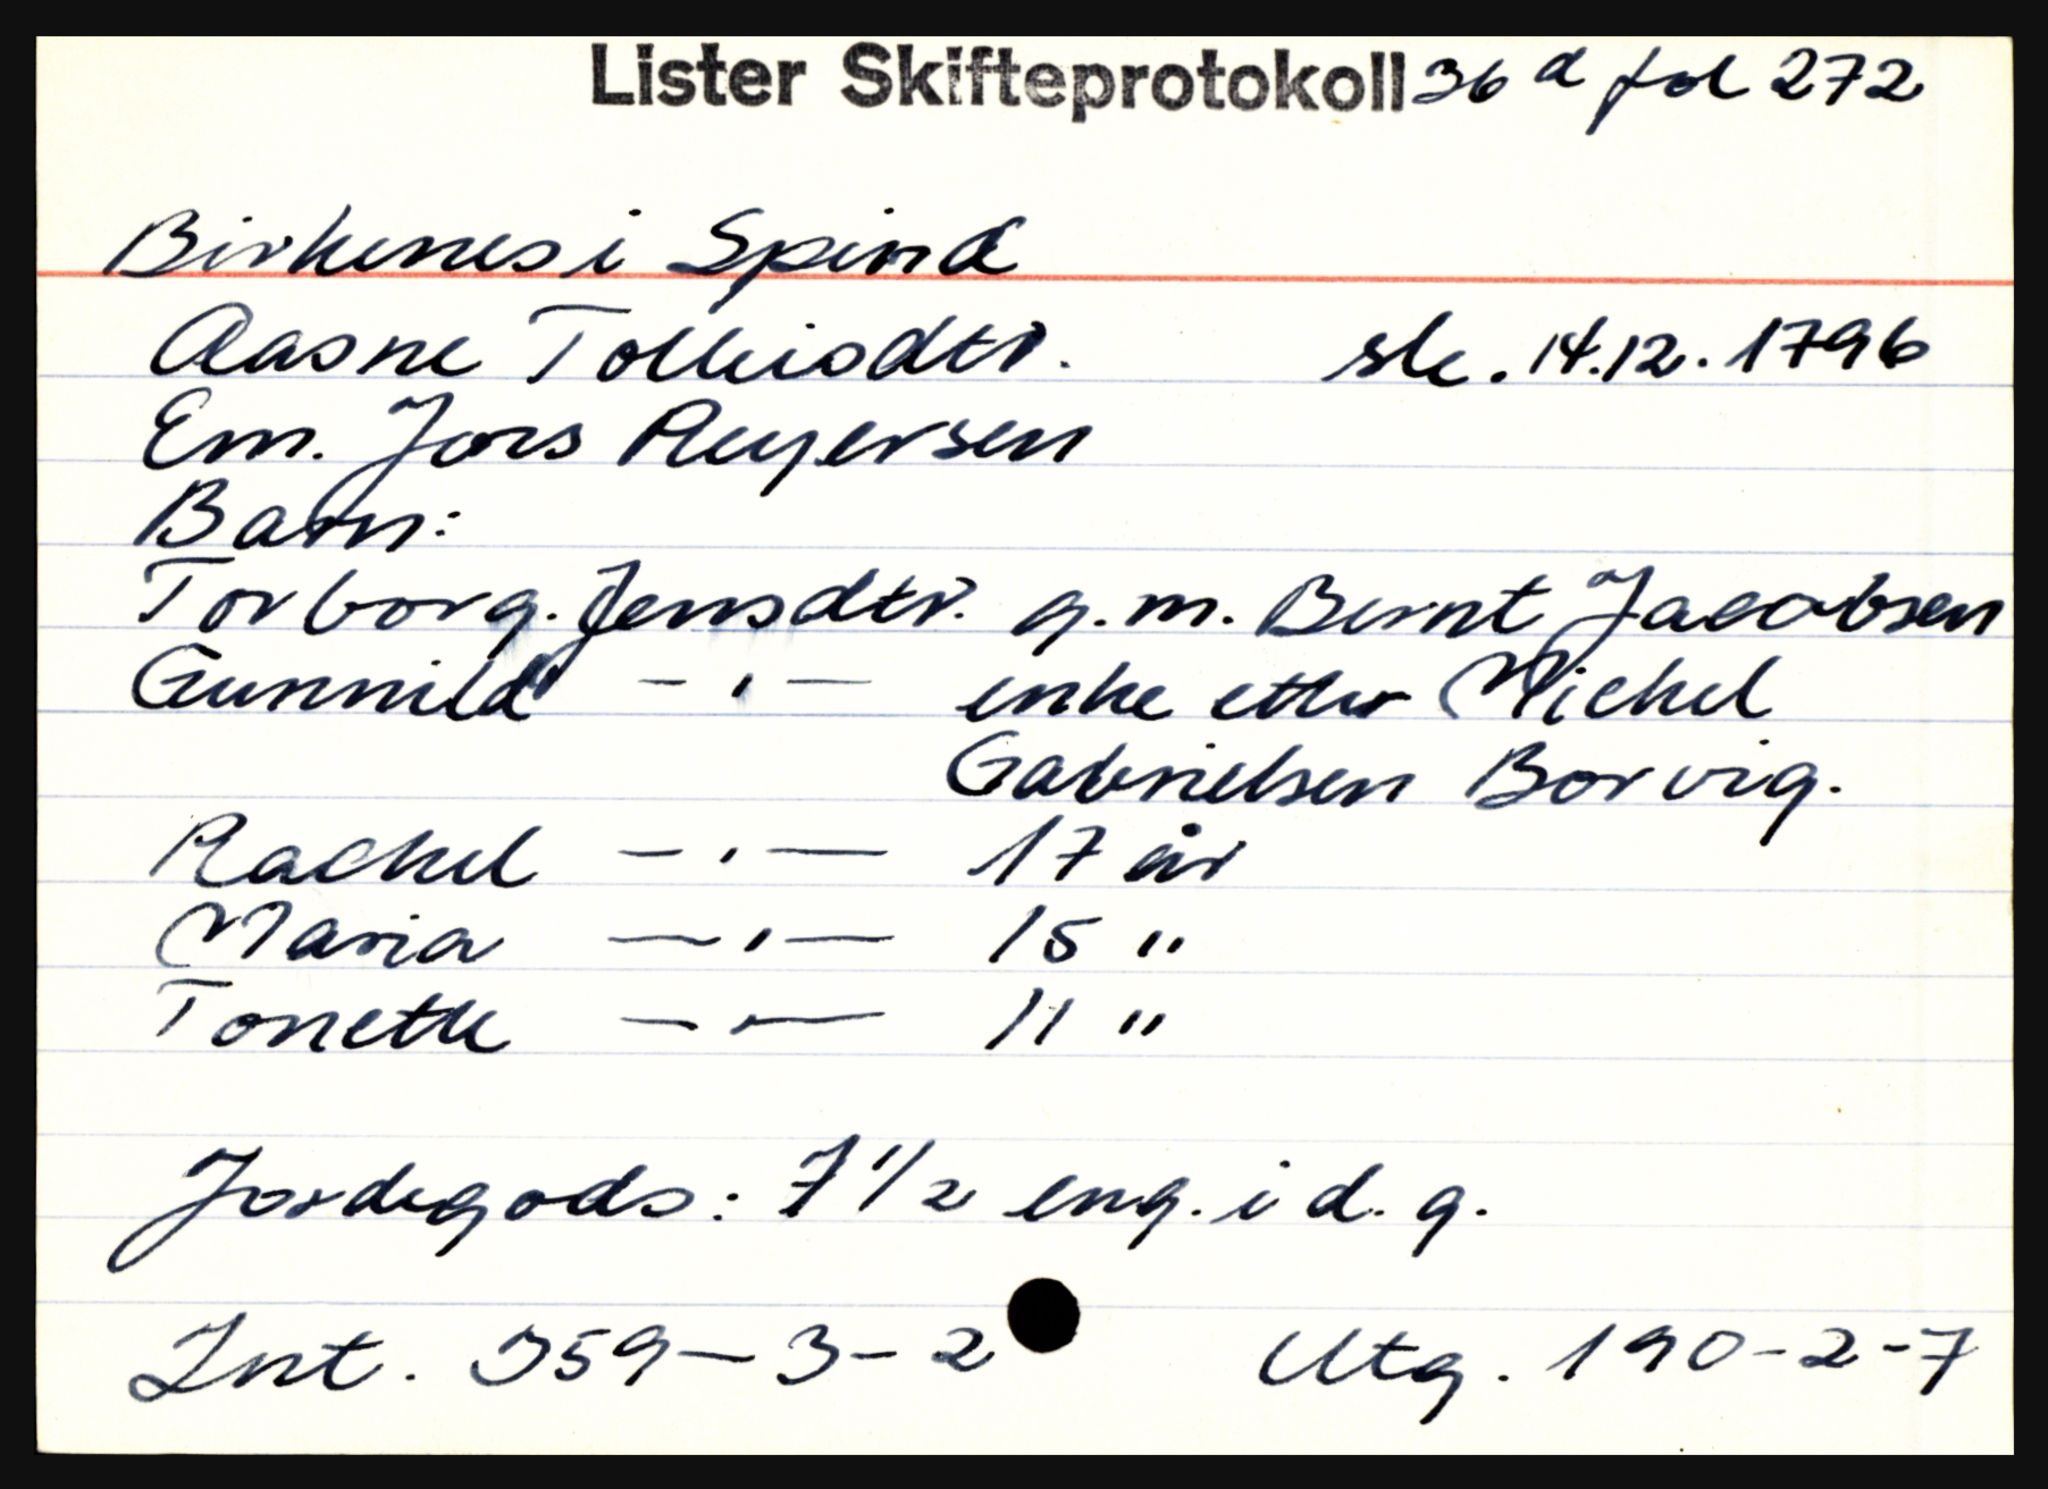 Lister Skifteprotokoll 36 a fol 272
Birkenes i Spind
Aasne Tolleisdtr. sk. 14.12.1796
Em. Jens Reyersen
Barn:
Torborg. Jensdtr. g.m. Bernt Jacobsen
Gunnild - " - enke etter Michel
Gabrielsen Borvig.
Rachel - " - 17 år
Maria - " - 15 "
Tonette - " - 11 "
Jordegods: 7 1/2 eng. i d. g.
Int. 359 - 3 - 2 Utg. 190 - 2 - 7